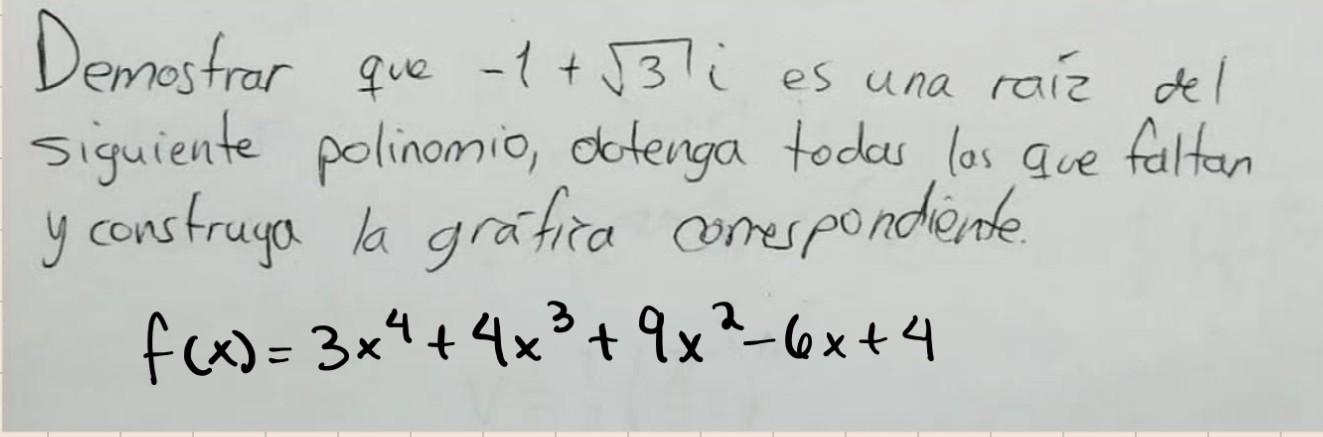 Demostrar que -1 + √3 i es una raíz del
siguiente polinomio, obtenga todas las que faltan
y construya la gráfica correspondiente.
f(x) = 3x⁴ + 4x³ + 9x² - 6x + 4